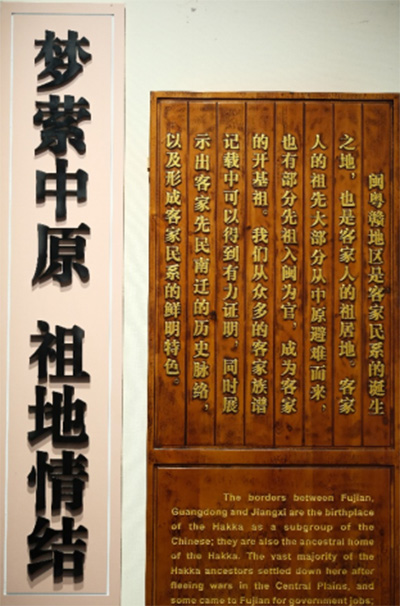 梦萦中原 祖地情结
闽粤赣地区是客家民系的诞生
之地，也是客家人的祖居地。客家
人的祖先大部分从中原避难而来，
也有部分先祖入闽为官，成为客家
的开基祖。我们从众多的客家族谱
记载中可以得到有力证明，同时展
示出客家先民南迁的历史脉络，
以及形成客家民系的鲜明特色。
The borders between Fujian,
Guangdong and Jiangxi are the birthplace
of the Hakka as a subgroup of the
Chinese; they are also the ancestral home
of the Hakka. The vast majority of the
Hakka ancestors settled down here after
fleeing wars in the Central Plains, and
some came to Fujian for government jobs;